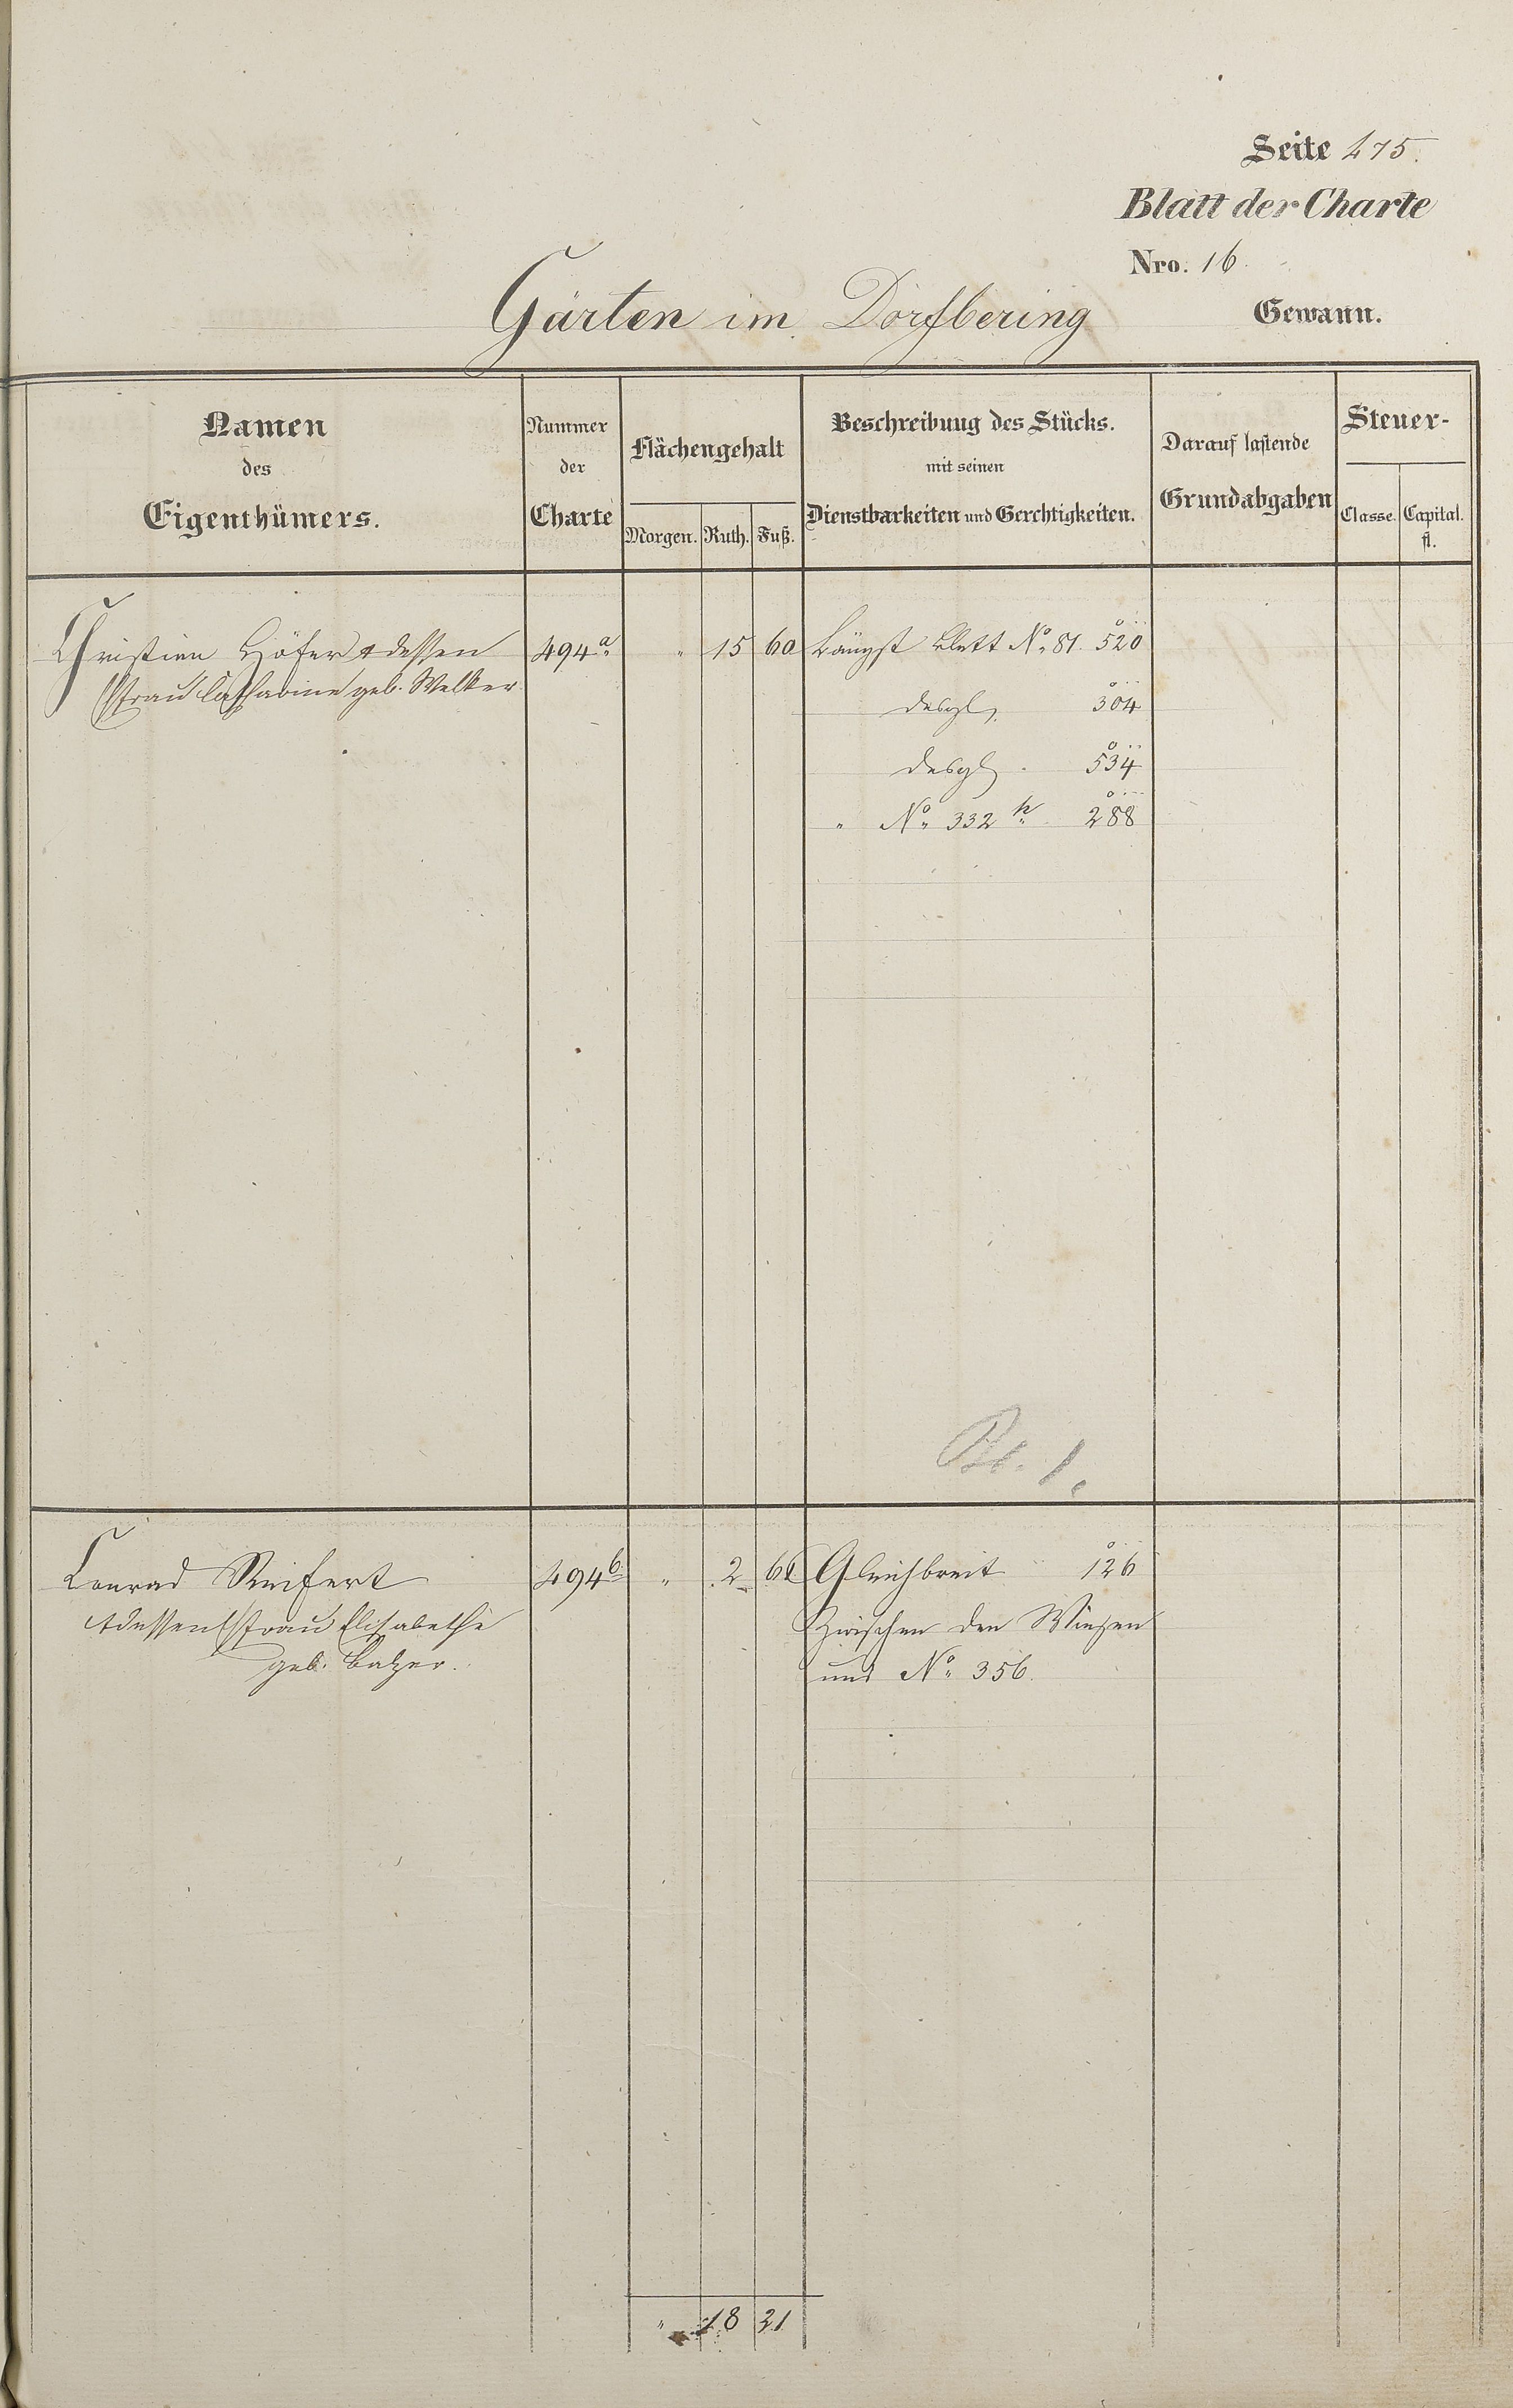 Seite 475.
Blatt der Charte
Nro. 16.
Gärten im Dorfbering Gewann.
Namen des Eigenthümers.
Nummer der Charte
Flächengehalt
Morgen. Ruth. Fuß.
Beschreibung des Stücks.
mit seinen
Dienstbarkeiten und Gerchtigkeiten.
Darauf lastende
Grundabgaben
Steuer-
Classe. Capital.
fl.
Christian Höfer & dessen 494a " 15 60 Längst Blatt No 81. 520
Frau Catharine geb. Welker
desgl. 304
desgl. 534
" No 332 h 288
Bl. 1.
Conrad Reifert 494b " 2 61 Gleichbreit 126
& dessen Frau Elisabethe zwischen den Wiesen
geb. Balzer. und No 356.
" 18 21